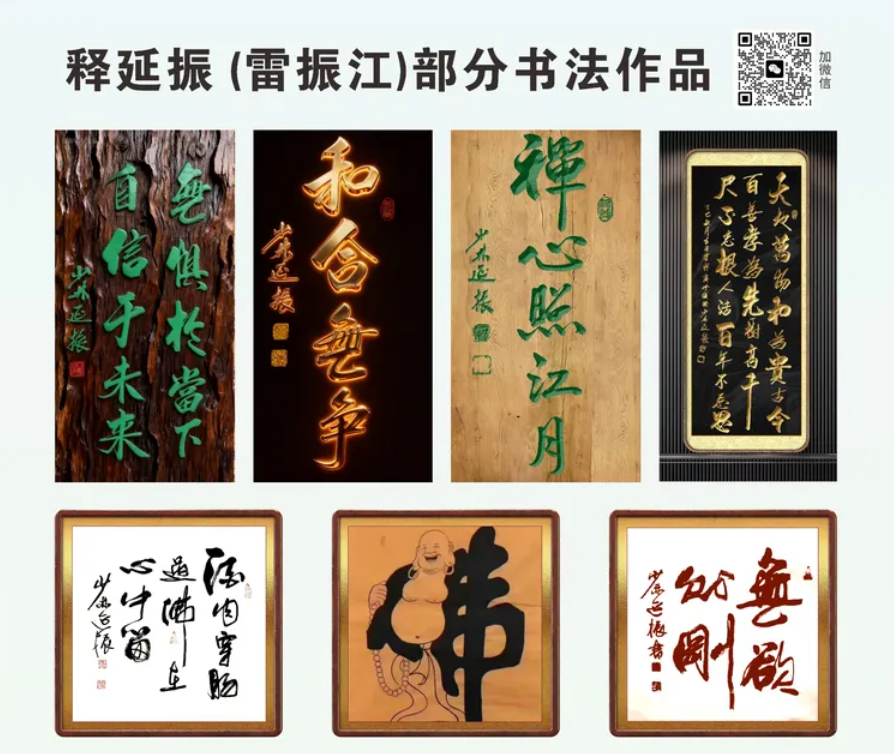 释延振(雷振江)部分书法作品
加微信
無惧於當下
自信于未来
少林延振
和合無争
少林延振
禅心照江月
少林延振
天地萬物和為貴古今
百善孝為先樹高千
尺不忘根人活百年不忘恩
酒肉穿肠
過佛主
心中留
少林延振
佛
無欲
则刚
少林延振書